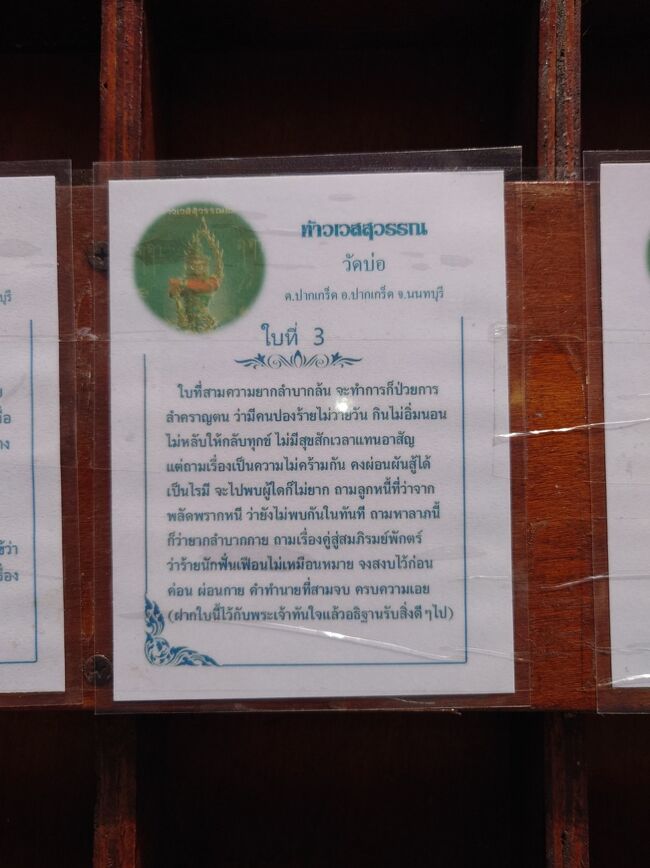 ท้าวเวสสุวรรณ
วัดบ่อ
ต.ปากเกร็ด อ.ปากเกร็ด จ.นนทบุรี
ใบที่ 3
ใบที่สามความยากลำบากล้น จะทำการก็ป่วยการ
สำคราญตน ว่ามีคนปองร้ายไม่วายวัน กินไม่อิ่มนอน
ไม่หลับให้กลับทุกข์ ไม่มีสุขสักเวลาแทนอาสัญ
แต่ถามเรื่องเป็นความไม่คร้ามกัน คงผ่อนผันสู้ได้
เป็นไรมี จะไปพบผู้ใดก็ไม่ยาก ถามลูกหนี้ที่ว่าจาก
พลัดพรากหนี ว่ายังไม่พบกันในทันที ถามหาลาภนี้
ก็ว่ายากลำบากกาย ถามเรื่องคู่สู่สมภิรมย์พักตร์
ว่าร้ายนักฟั่นเฟือนไม่เหมือนหมาย จงสงบไว้ก่อน
ค่อน ผ่อนกาย คำทำนายที่สามจบ ครบความเอย
(ฝากใบนี้ไว้กับพระเจ้าทันใจแล้วอธิฐานรับสิ่งดีๆไป)